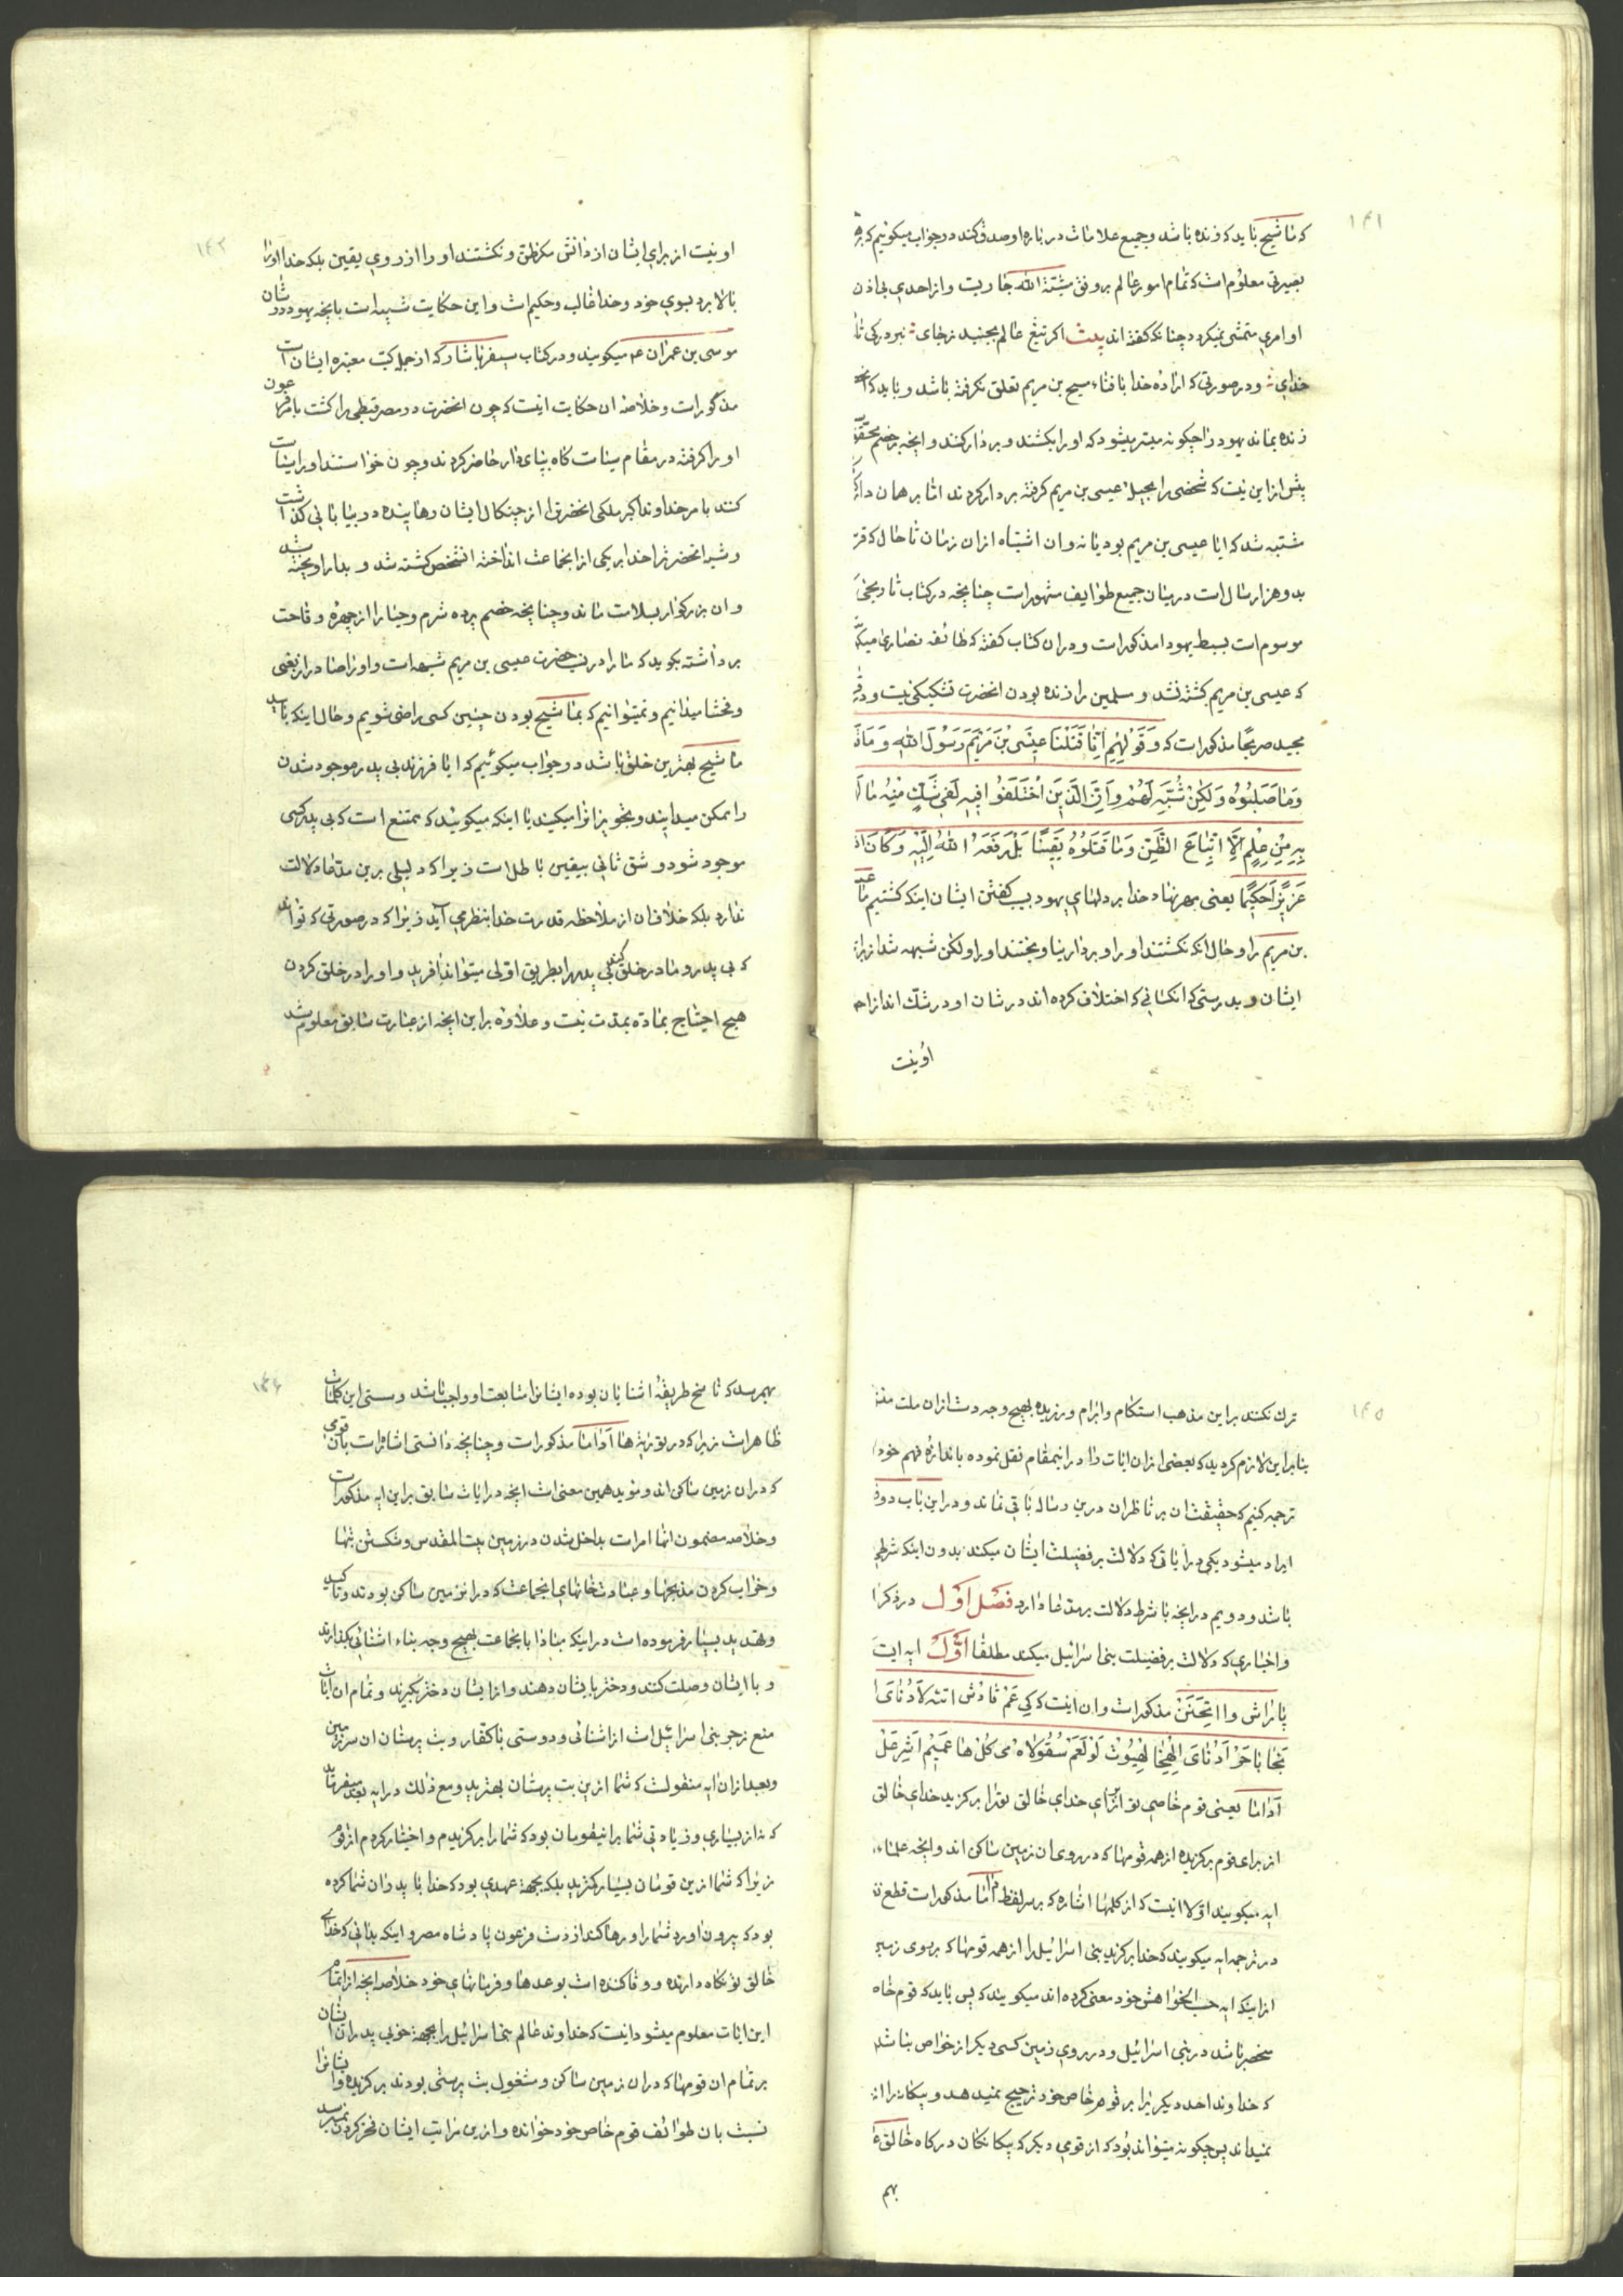 ۱۴۱
که ماشیح باید که زنده باشد و جمیع علامات در باره او صدق کند در جواب میکوئیم که بر
بصیرتی معلوم است که تمام امور عالم بر وفق مشیّة الله جاریست و از احدی بی اذن
او امری متمشی نمیکردد چنانکه کفته اند بیت اکر تیغ عالم بجنبد زجای نبرد رکی تا
خدای و در صورتی که اراده خدا بافناء مسیح بن مریم تعلق نکرفته باشد و باید که
زنده بماند یهود را چکونه میسّر میشود که او را بکشند و بر دار کنند و انچه بر خصم محقّق
بیش از این نیست که شخصی را بجیل عیسی بن مریم کرفته بر دار کردند امّا بر همان
مشتبه شد که ایا عیسی بن مریم بود یا نه و ان اشتباه از ان زمان تا حال که قر
بدو هزار سال است در میان جمیع طوایف مشهور است چنانچه در کتاب تاریخی
موسوم است بسبط یهودا مذکور است و در ان کتاب کفته که طائفه نصاری میکو
که عیسی بن مریم کشته نشد و مسلمین را زنده بودن انحضرت تشکیکی نیست و در
مجید صریحًا مذکور است که وَ قَوْلِهِمْ اِنَّا قَتَلْنَا عِیسَی بْنَ مَرْیَمَ رَسُولَ اللهِ وَ مَا قَ
وَمَا صَلَبُوهُ وَلٰکِنْ شُبِّهَ لَهُمْ وَاِنَّ الَّذِینَ اخْتَلَفُوا فِیهِ لَفِی شَکٍّ مِنْهُ مَا لَ
بِهِ مِنْ عِلْمٍ اِلَّا اتِّبَاعَ الظَّنِّ وَمَا قَتَلُوهُ یَقِینًا بَلْ رَفَعَهُ اللهُ اِلَیْهِ وَکَانَ
عَزِیزًا حَکِیمًا یعنی مهر نهاد خدا بر دلهای یهود بسبب کفتن ایشان اینکه کشتیم ما
بن مریم را و حال انکه نکشتند او را و بر دار نیاویختند او را و لکن شبهه شد از برای
ایشان و بدرستی که انکسانی که اختلاف کرده اند در شان او در شک اند از
او نیست
۱۴۲
او نیست از برای ایشان از دانش مکر ظن و نکشتند او را از روی یقین بلکه خدا او را
بالا برد بسوی خود و خدا غالب و حکیم است و این حکایت شبیه است بانچه یهود در شان
موسی بن عمران ع میکویند و در کتاب سیفر یاشار که از جمله کتب معتبره ایشان است
مذکور است و خلاصه ان حکایت اینست که چون انحضرت در مصر قبطی را کشت بامر فرعون
او را کرفته در مقام سیاست کاه بپای دار حاضر کردند و چون خواستند او را سیاست
کنند بامر خداوند اکبر ملکی انحضرت را از چنکال ایشان رهانیده در بیابانی کذاشت
و شبه انحضرت را خدا بر یکی از انجماعت انداخته انشخص کشته شد و بدار اویخته شد
و ان بزرکوار بسلامت ماند و چنانچه خصم پرده شرم و حیا را از چهره وقاحت
برداشته بکوید که ما را در نسب حضرت عیسی بن مریم شبهه است و او را
و فحشا میدانیم و نمیتوانیم که بماشیح بودن چنین کسی راضی شویم و حال اینکه باید
ماشیح بهترین خلق باشد در جواب میکوئیم که ایا فرزند بی پدر موجود شدن
را ممکن میدانید و تجویز انرا میکنید یا اینکه میکوئید که ممتنع است که بی پدر کسی
موجود شود و شق ثانی بیقین باطل است زیرا که دلیلی برین مدعا دلالت
ندارد بلکه خلاف ان از ملاحظه قدرت خدا بنظر می آید زیرا که در صورتی که تواند
که بی پدر و مادر خلق کند بی پدر را بطریق اولی میتواند افرید و او را در خلق کردن
هیچ احتیاج بماده بمدت نیست و علاوه بر این انچه از عبارت سابق معلوم شد
۱۴۵
ترک نکنند بر این مذهب استکام و ابرام ورزیده بهیچ وجه دست از ان ملت
بنابر این لازم کردید که بعضی از ان ایات را در اینمقام نقل نموده باندازه فهم خود
ترجمه کنیم که حقیقت ان بر ناظران درین رساله باقی نماند و در این باب دو
ایراد میشود یکی در آیاتی که دلالت بر فضیلت ایشان میکند بدون اینکه شرطی
باشد و دویم در انچه با شرط دلالت بر مدعا دارد فصل اول در ذکر
و اخباری که دلالت بر فضیلت بنی اسرائیل میکند مطلقا اوّل ایه ایست
پاراش وااتحنن مذکور است و ان اینست که کی عَمْ قادُش اته لادُنای
بخا باحَرْ آدُنای اِلُهِخا لِهیوُت لوْ لعَمْ سُقُولاه می کُل ها عَمیم اَشِر عَلْ
آداما یعنی قوم خاصی تو از برای خدای خالق تو را برکزید خدای خالق
از برای قوم برکزیده از همه قومها که در روی ان زمین ساکن اند و انچه علماء
ایه میکویند اولا اینست که از کلمها اشاره که بر سر لفظ آداما مذکور است قطع
در ترجمه ایه میکویند که خدا برکزید بنی اسرائیل را از همه قومها که بر روی زمین
از اینکه ایه حسب الخواهش خود معنی کرده اند میکویند که پس باید که قوم خاص
منحصر باشد در بنی اسرائیل و در روی زمین کسی دیکر از خواص نباشد
که خداوند احد دیکریرا بر قوم خاص خود ترجیح نمیدهد و بیکانه را
نمیداند پس چکونه میتواند بود که از قومی دیکر که بیکانکان درکاه خالق
بهم
۱۴۶
بهم رسد که ناسخ طریقهٔ اشنایان بوده ایشانرا متابعت او واجب باشد و سستی این کلمات
ظاهر است زیرا که در توریة ها آداما مذکور است و چنانچه دانستی اشاره است بان قومی
که در ان زمین ساکن اند و مؤید همین معنی است انچه در ایات سابق بر این ایه مذکور است
و خلاصه مضمون انها امر است بداخل شدن در زمین بیت المقدس و شکستن بتها
و خراب کردن مذبحها و عبادتخانهای انجماعت که در انزمین ساکن بودند و تاکید
و تهدید بسیار فرموده است در اینکه مبادا با انجماعت بهیچ وجه بناء اشنائی کذارند
و با ایشان وصلت کنند و دختر بایشان دهند و از ایشان دختر بکیرند و تمام ان ایات
منع و زجر بنی اسرائیل است از اشنائی و دوستی با کفار و بت پرستان ان سرزمین
و بعد از ان ایه منقولست که شما ازین بت پرستان بهترید و مع ذلک در ایه بعد میفرماید
که نه از بسیاری و زیادتی شما بر اینقومان بود که شما را برکزیدم و اختیار کردم از قوم
زیرا که شما ازین قومان بسیار کمترید بلکه بجهة عهدی بود که خدا با پدران شما کرده
بود که بیرون اورد شما را و رها کند از دست فرعون پادشاه مصر و اینکه بدانی که خدای
خالق تو نکاه دارنده و وفا کننده است بوعدها و فرمانهای خود خلاصه انچه از تمام
این ایات معلوم میشود اینست که خداوند عالم بنی اسرائیل را بجهة خوبی پدران ایشان
بر تمام ان قومها که در ان زمین ساکن و مشغول بت پرستی بودند برکزیده و ایشانرا
نسبت بان طوائف قوم خاص خود خوانده و ازین مراتب ایشان فخر کردن نمیرسد